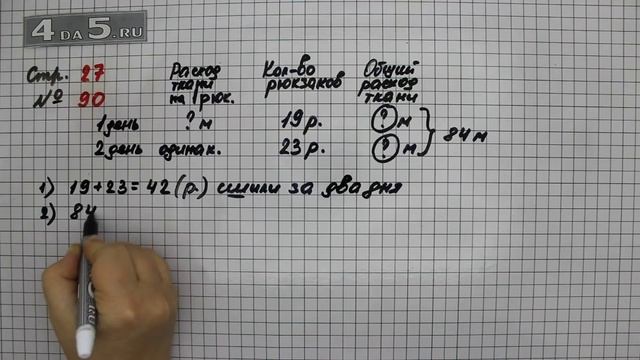 4 DA 5.RU
Стр. 27
№ 90
Расход ткани на 1 рюк.
Кол-во рюкзаков
Общий расход ткани
1 день ? м 19 р. ? м
2 день одинак. 23 р. ? м } 84 м
1) 19 + 23 = 42 (р.) сшили за два дня
2) 84